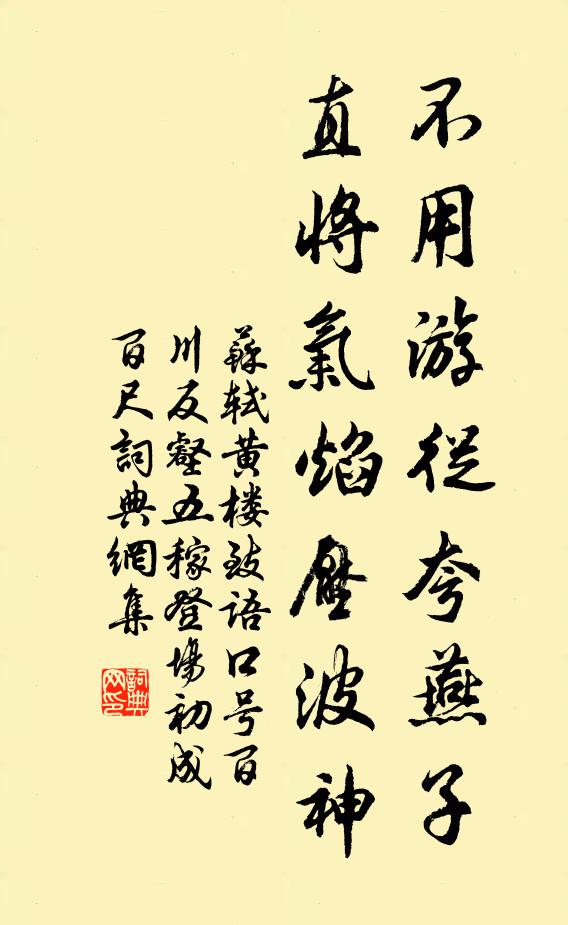 不用游從夸燕子
直將氣焰壓波神
蘇軾黃楼致語口号百
川反壑五稼登場初成
百尺詞典網集
詞典
网印